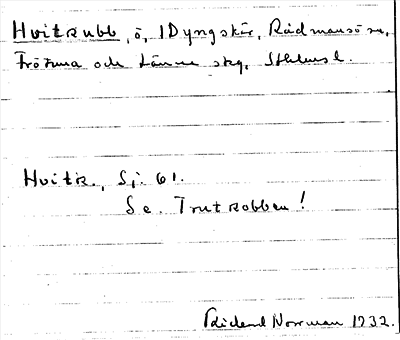 Hvitkubb, ö, i Dyngskär, Rådmansö sn,
Frötuna och Länna skg, Sthlms l.
Hvitk., Sj. 61.
Se. Trutkobben!
Rickard Norrman 1932.